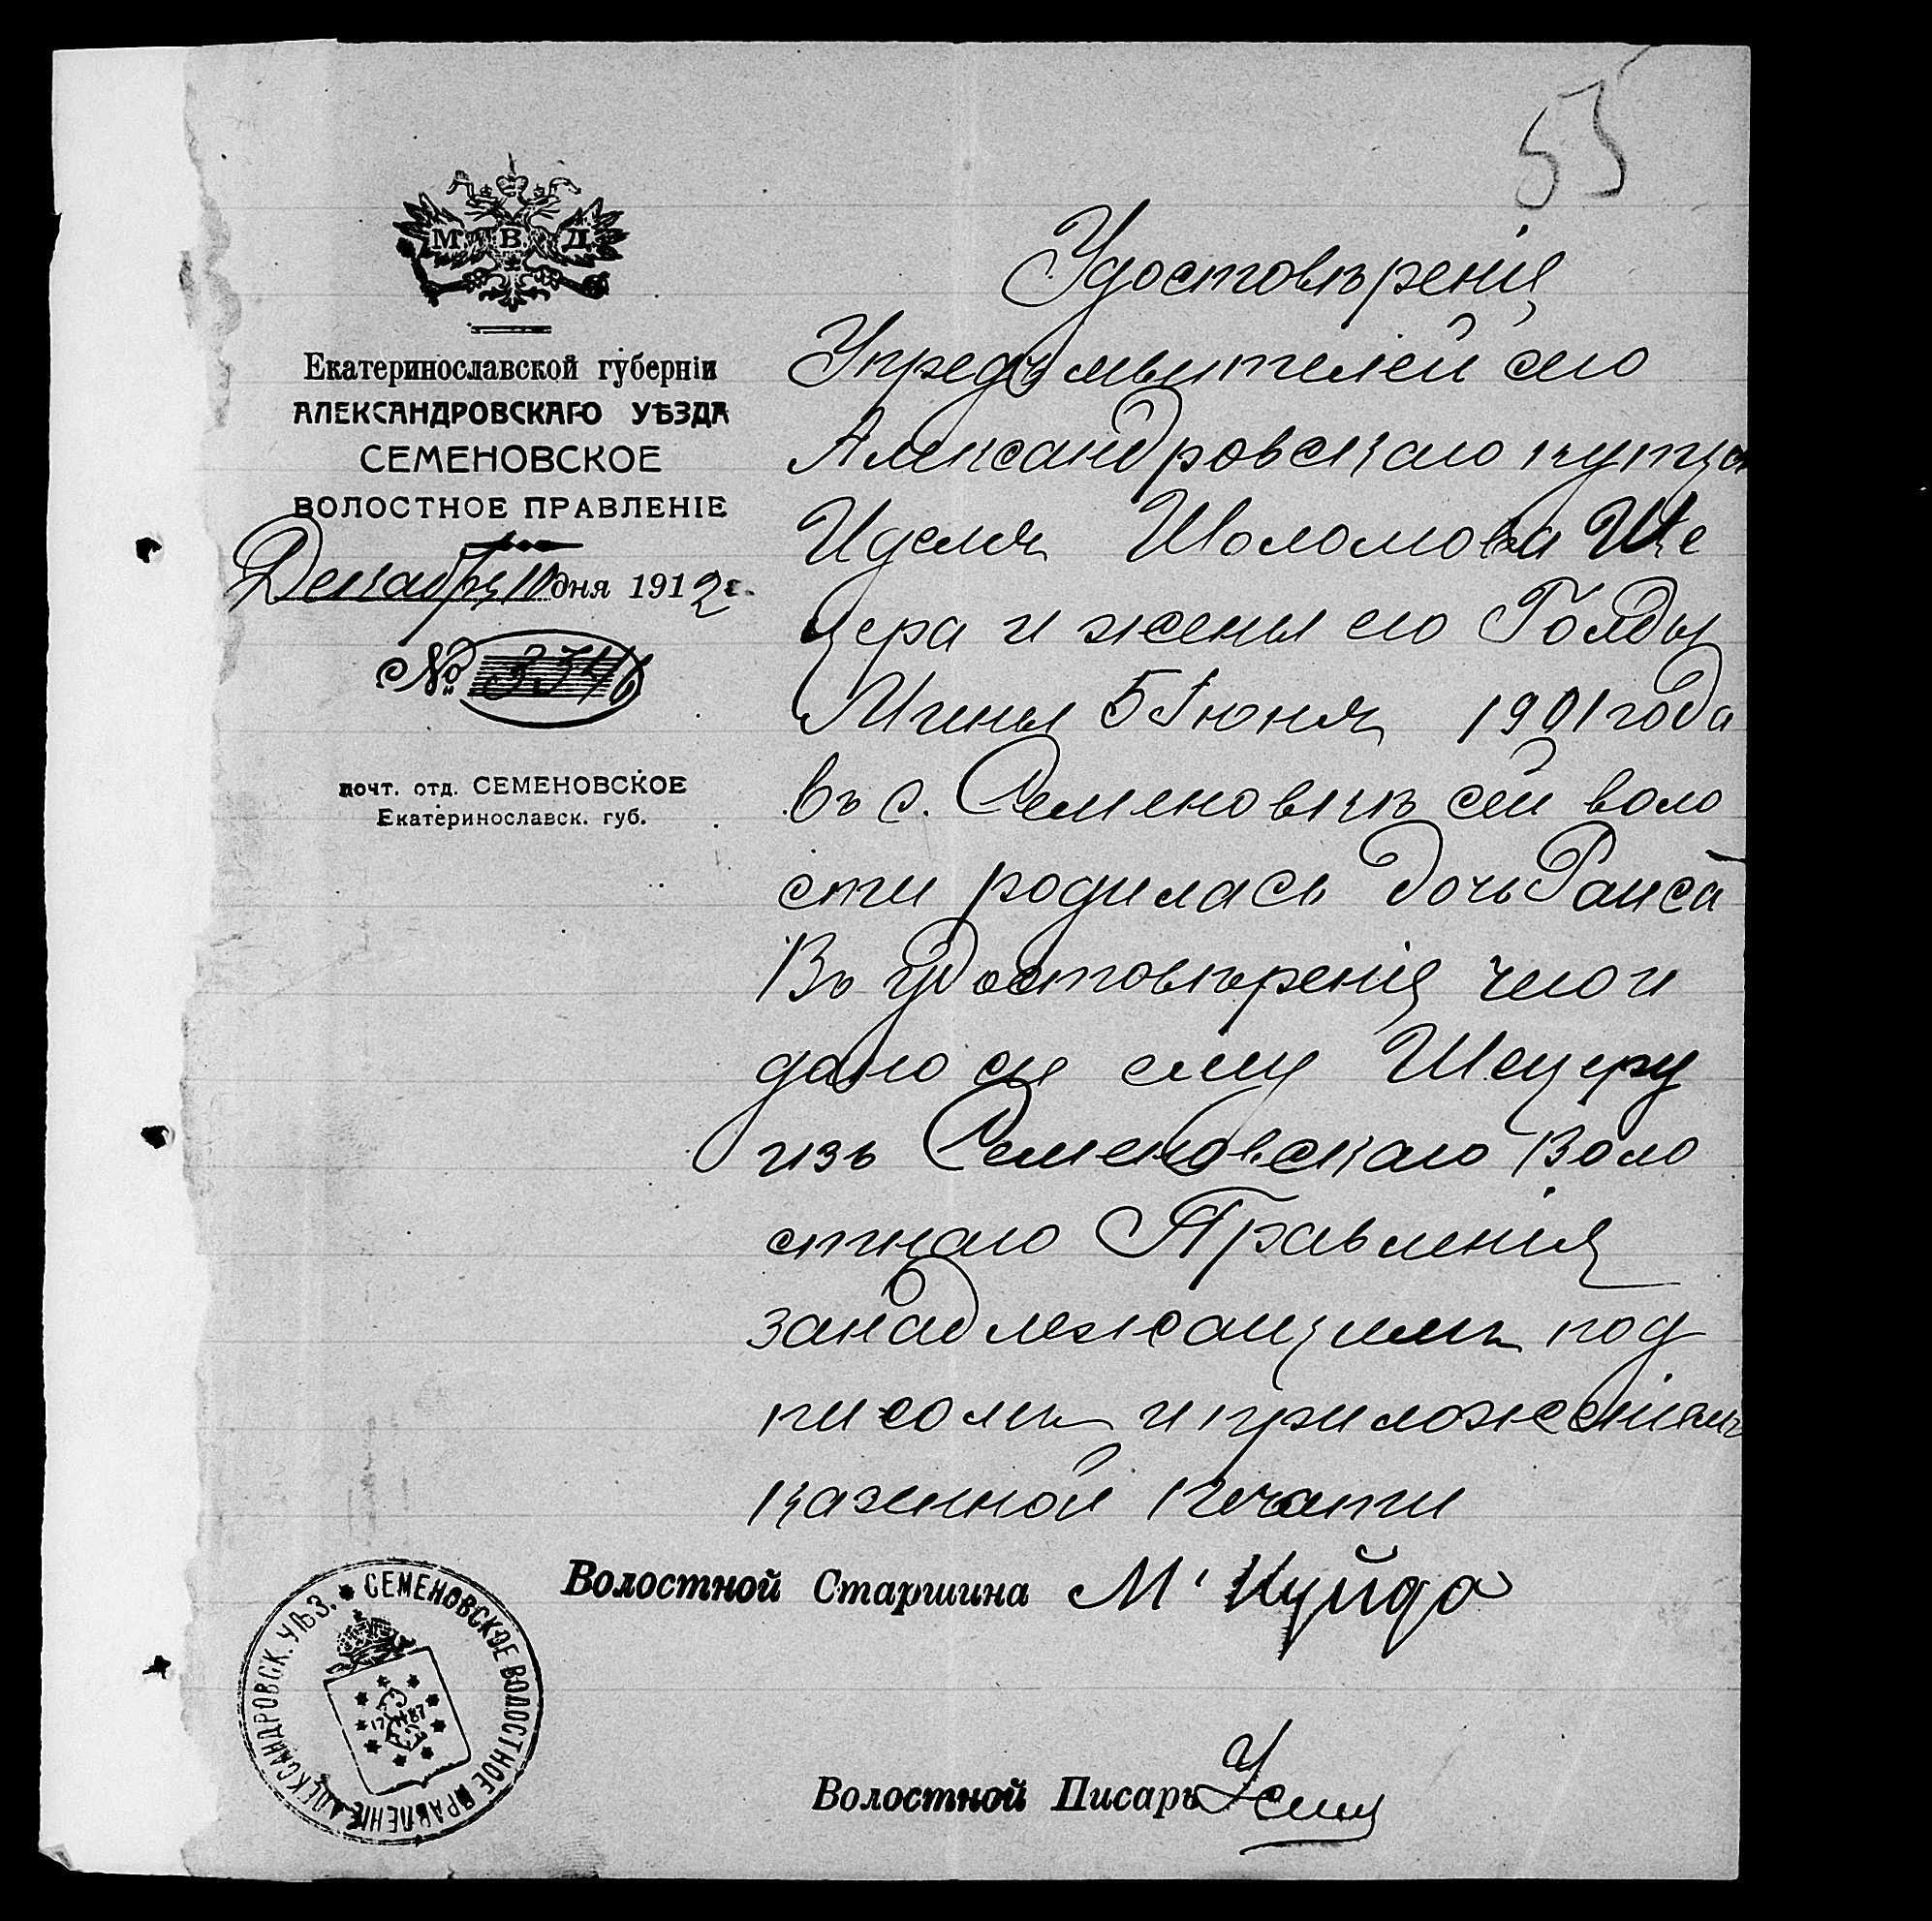 55
М. В. Д.
Екатеринославской губерніи
АЛЕКСАНДРОВСКАГО УѢЗДА
СЕМЕНОВСКОЕ
ВОЛОСТНОЕ ПРАВЛЕНІЕ
Декабря 10 дня 1912 г.
№ 3346
почт. отд. СЕМЕНОВСКОЕ
Екатеринославск. губ.
Удостовѣреніе
сего
Александровскаго купца
Иделя Шоломова Ше
цера и жены его Голды
Мины 5 Іюня 1901 года
въ с. Семеновкѣ сей воло
сти родилась дочь Раиса
Въ удостовѣреніе чего и
дано се ему Шецеру
изъ Семеновскаго Воло
стнаго Правленія
за надлежащимъ под
писомъ и приложеніемъ
казенной печати
Волостной Старшина М. Куйда
Волостной Писарь
СЕМЕНОВСКОЕ ВОЛОСТНОЕ ПРАВЛЕНІЕ АЛЕКСАНДРОВСК. УѢЗ.
1787